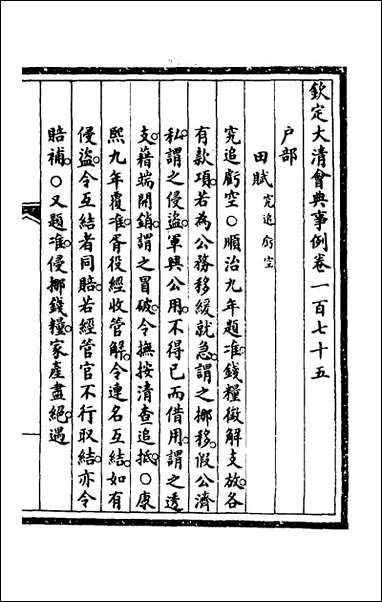 欽定大清會典事例卷一百七十五
戶部
田賦 究追虧空
究追虧空○順治九年題准錢糧徵解支放各
有款項若為公務移緩就急謂之挪移假公濟
私謂之侵盜軍興公用不得已而借用謂之透
支藉端開銷謂之冒破令撫按清查追抵○康
熙九年覆准胥役經收管解令連名互結如有
侵盜令互結者同賠若經管官不行取結亦令
賠補○又題准侵挪錢糧家產盡絕遇